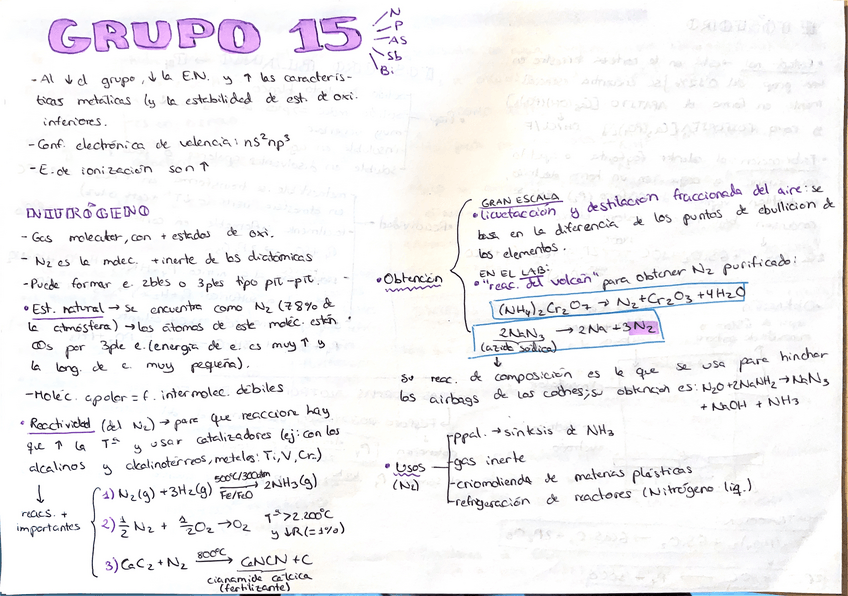 GRUPO 15
N
P
AS
Sb
Bi
-Al ↓ el grupo, ↓ la E.N. y ↑ las caracterís-
ticas metálicas (y la estabilidad de est. de oxi.
inferiores.
-Conf. electrónica de valencia: ns²np³
-E. de ionización son ↑
NITRÓGENO
-Gas molecular, con + estados de oxi.
-N₂ es la molec. +inerte de las diatómicas
-Puede formar e. 2bles o 3ples tipo pπ-pπ.
• Est. natural → se encuentra como N₂ (78% de
la atmósfera) → los átomos de este moléc. están
∞s por 3ple e. (energía de e. es muy ↑ y
la long. de e. muy pequeña).
-Moléc. apolar = f. intermolec. débiles
• Reactividad (del N₂) → para que reaccione hay
que ↑ la Tª y usar catalizadores (ej: con los
alcalinos y alcalinotérreos, metales: Ti, V, Cr.)
↓
reacs. +
importantes
1) N₂(g) + 3H₂(g) 500ºC/300atm → Fe/FeO 2NH₃(g)
2) ½ N₂ + ½ O₂ → O₂ Tª > 2.200ºC
y ↓R (=1%)
3) CaC₂ + N₂ 800ºC → CaNCN + C
cianamida cálcica
(fertilizante)
• Obtención
GRAN ESCALA
• licuefacción y destilación fraccionada del aire: se
basa en la diferencia de los puntos de ebullición de
los elementos.
EN EL LAB:
• "reac. del volcán" para obtener N₂ purificado:
(NH₄)₂Cr₂O₇ → N₂ + Cr₂O₃ + 4H₂O
2NaN₃ → 2Na + 3N₂
(azida sódica)
↓
Su reac. de composición es la que se usa para hinchar
los airbags de los coches; su obtención es: N₂O + 2NaNH₂ → NaN₃
+ NaOH + NH₃
• Usos
(N₂)
ppal. → síntesis de NH₃
gas inerte
criomolienda de materias plásticas
refrigeración de reactores (Nitrógeno liq.)